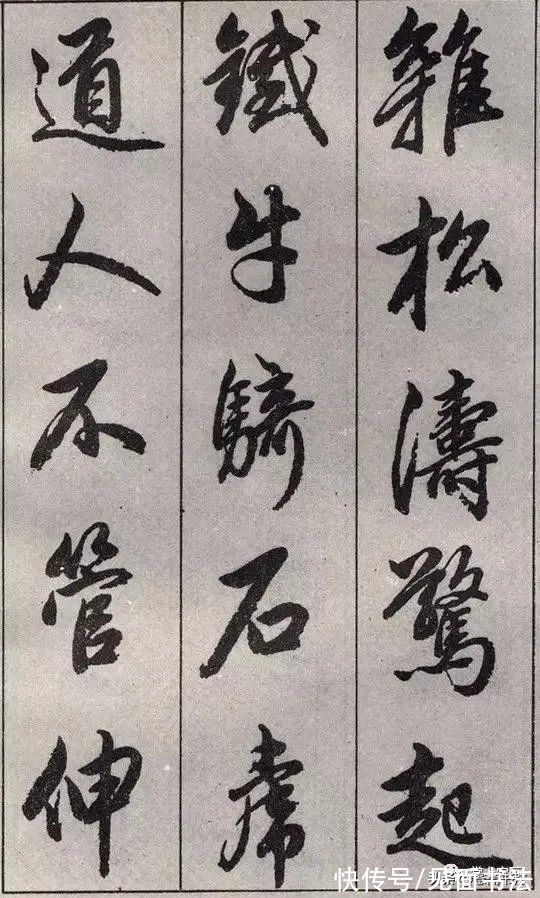 雜松濤驚起
鐵牛騎石虎
道人不管伸
快传号/见面书法